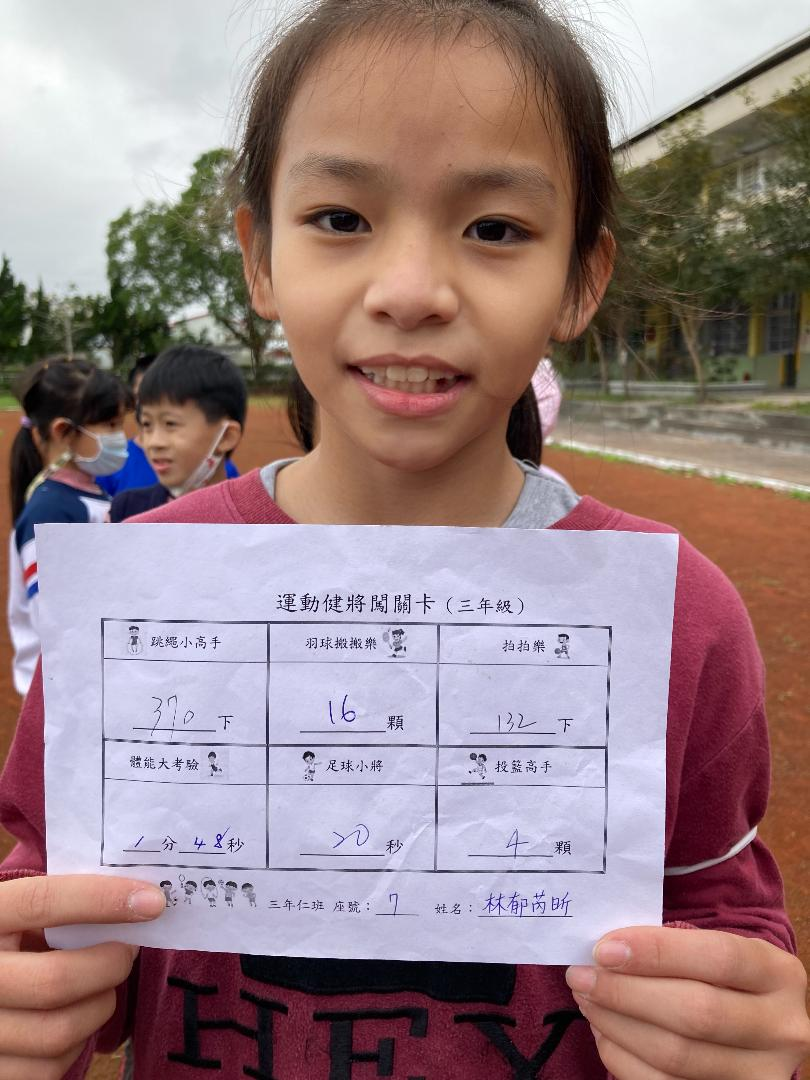 運動健將闖關卡（三年級）
跳繩小高手 羽球搬搬樂 拍拍樂
370下 16顆 132下
體能大考驗 足球小將 投籃高手
1分48秒 20秒 4顆
三年仁班 座號：7 姓名：林郁芮昕
HEY